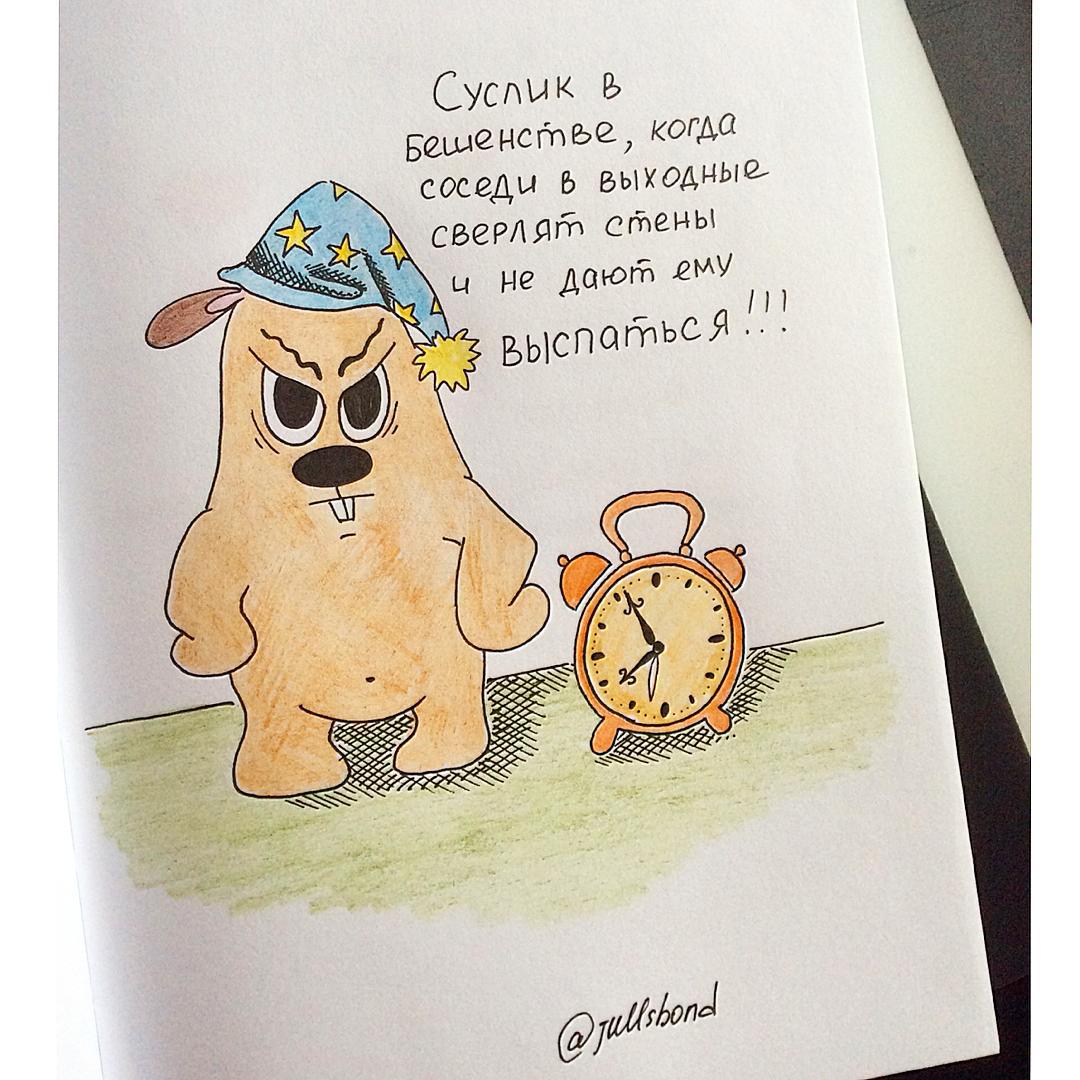 Суслик в
бешенстве, когда
соседи в выходные
сверлят стены
и не дают ему
выспаться!!!
@jullsbond